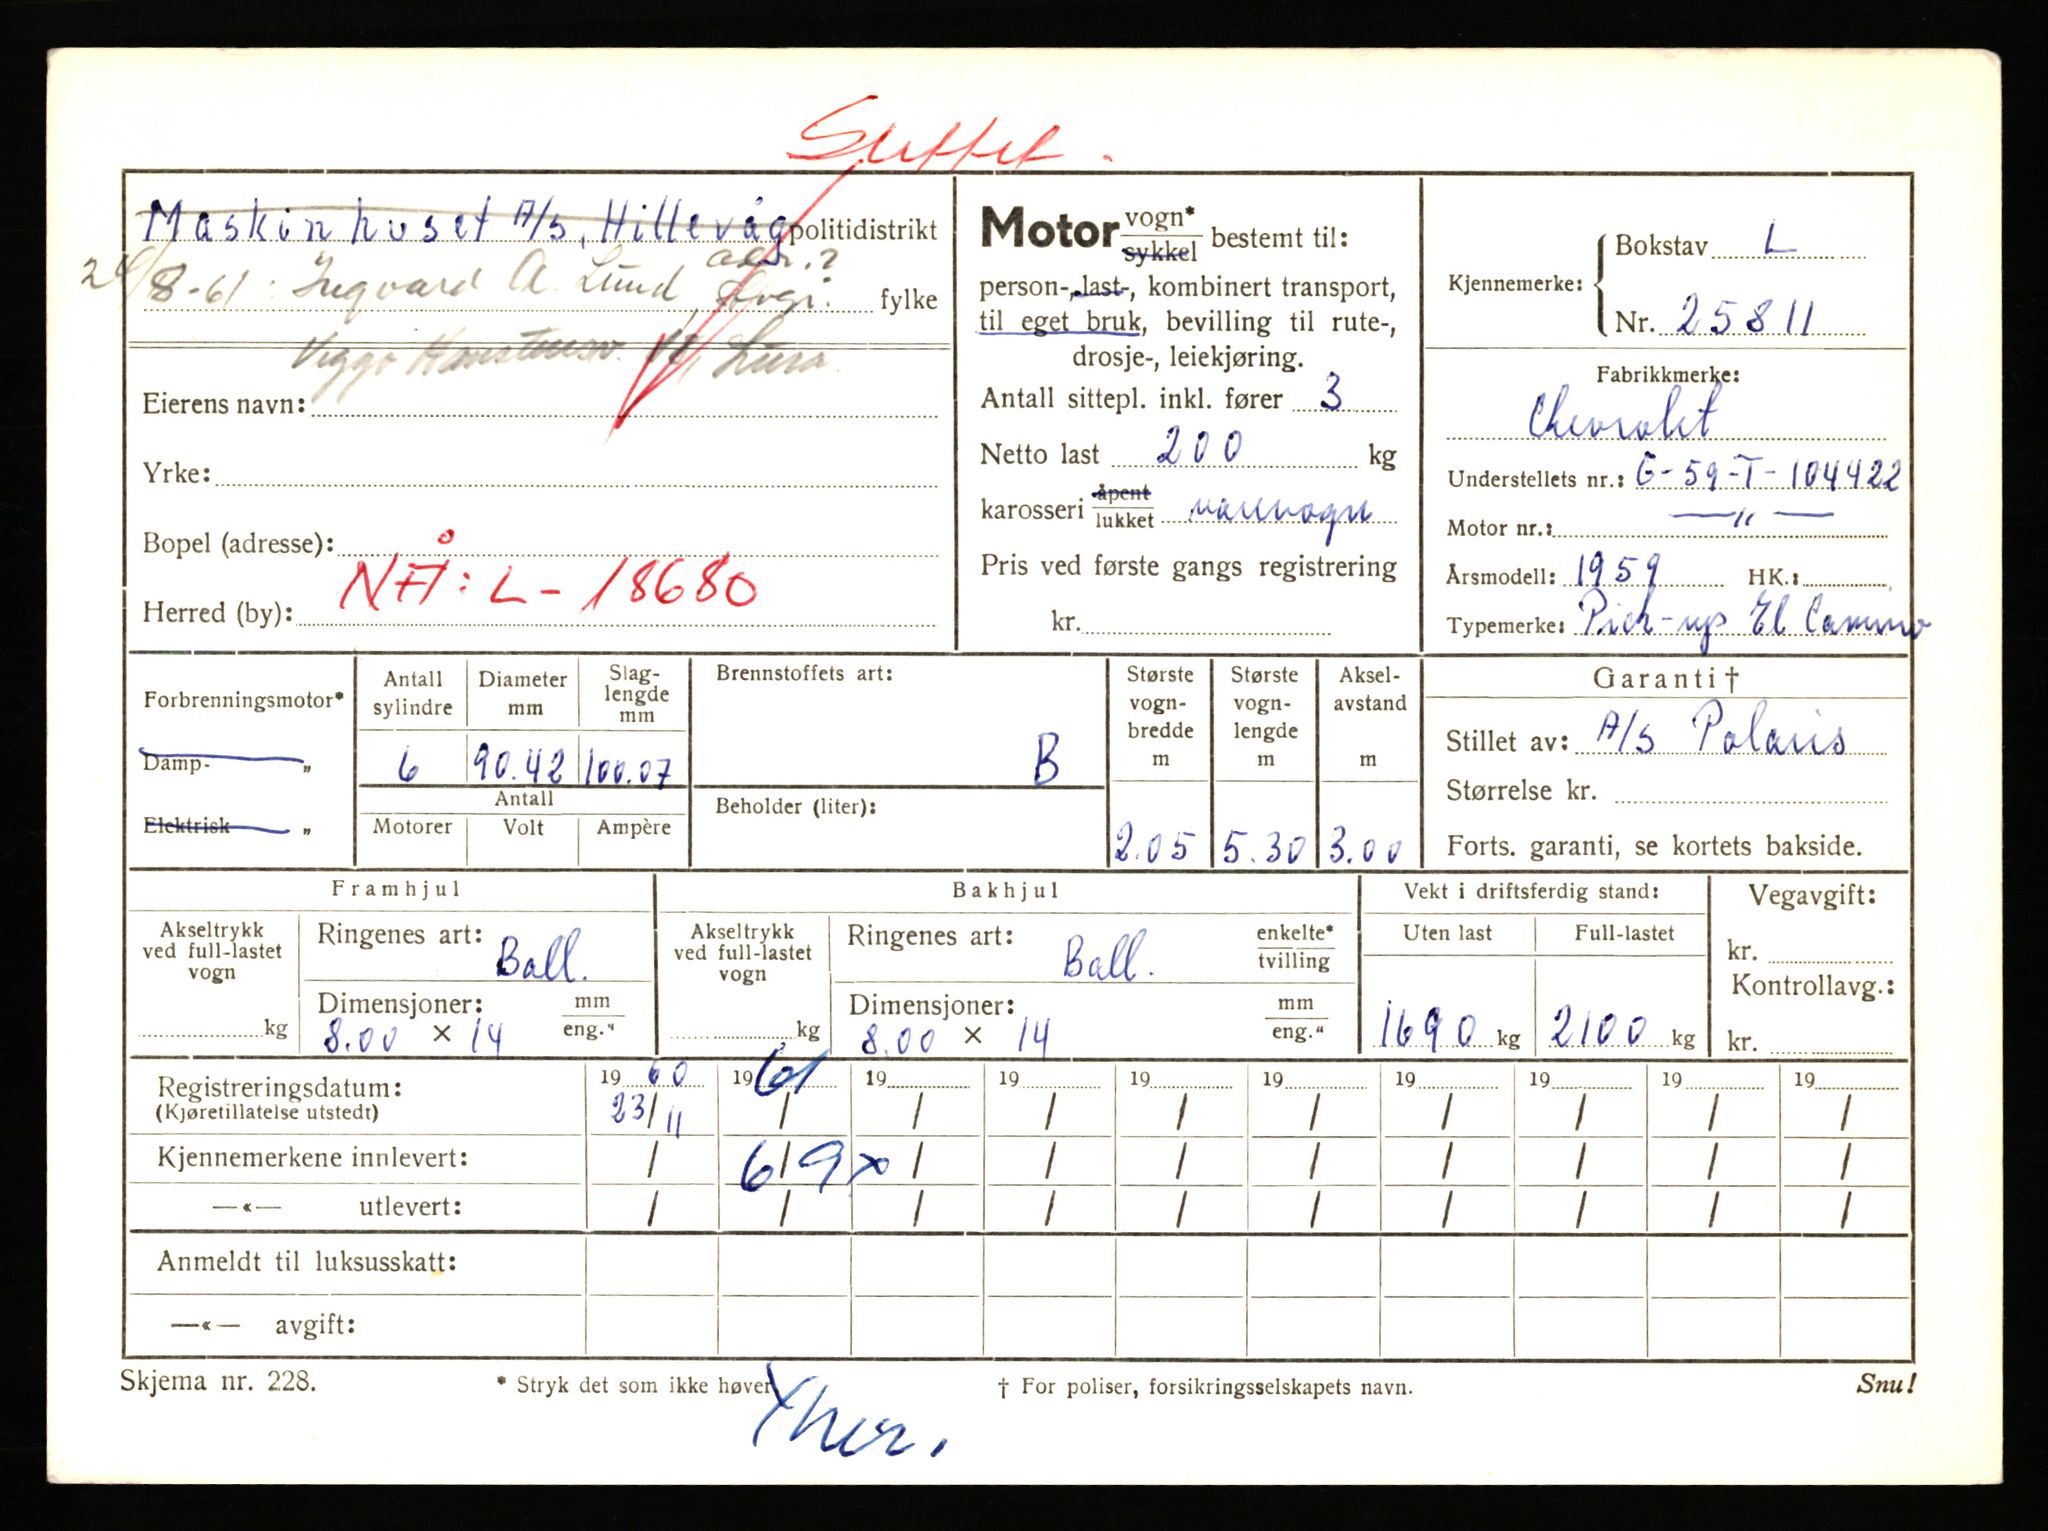 Slettet.
Maskinhuset A/S, Hillevåg politidistrikt
24/8-61: Ingvard A. Lund, adr.? fylke
Viggo Lura.
Eierens navn:
Yrke:
Bopel (adresse):
NÅ: L - 18680
Herred (by):
Motor vogn* / sykkel bestemt til:
person-, last-, kombinert transport,
til eget bruk, bevilling til rute-,
drosje-, leiekjøring.
Antall sittepl. inkl. fører 3
Netto last 200 kg
karosseri åpent / lukket varevogn
Pris ved første gangs registrering
kr.
Kjennemerke: Bokstav L
Nr. 25811
Fabrikkmerke:
Chevrolet
Understellets nr.: G-59-T-104422
Motor nr.: — „ —
Årsmodell: 1959 HK.:
Typemerke: Pick-up El Camino
Forbrenningsmotor*
Damp- „
Elektrisk „
Antall sylindre
Diameter mm
Slag- lengde mm
6 90.42 100.07
Antall
Motorer Volt Ampère
Brennstoffets art:
B
Beholder (liter):
Største vogn- bredde m
2.05
Største vogn- lengde m
5.30
Aksel- avstand m
3.00
Garanti †
Stillet av: A/S Polaris
Størrelse kr.
Forts. garanti, se kortets bakside.
Framhjul
Akseltrykk ved full-lastet vogn
kg
Ringenes art: Ball.
Dimensjoner: mm / eng."
8.00 × 14
Bakhjul
Akseltrykk ved full-lastet vogn
kg
Ringenes art: Ball. enkelte* / tvilling
Dimensjoner: mm / eng."
8.00 × 14
Vekt i driftsferdig stand:
Uten last Full-lastet
1690 kg 2100 kg
Vegavgift:
kr.
Kontrollavg.:
kr.
Registreringsdatum: 1960 1961 19 19 19 19 19 19 19 19
(Kjøretillatelse utstedt) 23/11 / / / / / / / / /
Kjennemerkene innlevert: / 6/9 x / / / / / / / /
—«— utlevert: / / / / / / / / / /
Anmeldt til luksusskatt:
—«— avgift:
Skjema nr. 228. * Stryk det som ikke høver † For poliser, forsikringsselskapets navn. Snu!